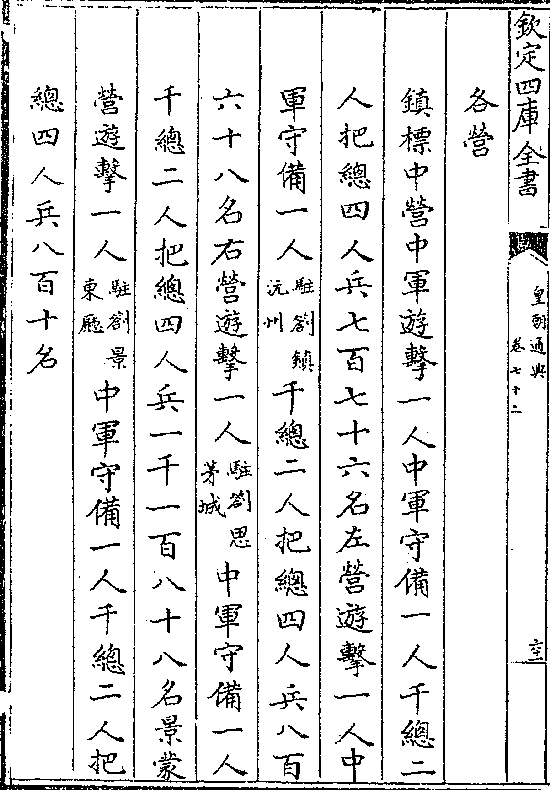 欽定四庫全書
皇朝通典
卷七十二
各營
鎮標中營中軍遊擊一人中軍守備一人千總二
人把總四人兵七百七十六名左營遊擊一人中
軍守備一人駐劄鎮沅州千總二人把總四人兵八百
六十八名右營遊擊一人駐劄思茅城中軍守備一人
千總二人把總四人兵一千一百八十八名景蒙
營遊擊一人駐劄景東廳中軍守備一人千總二人把
總四人兵八百十名